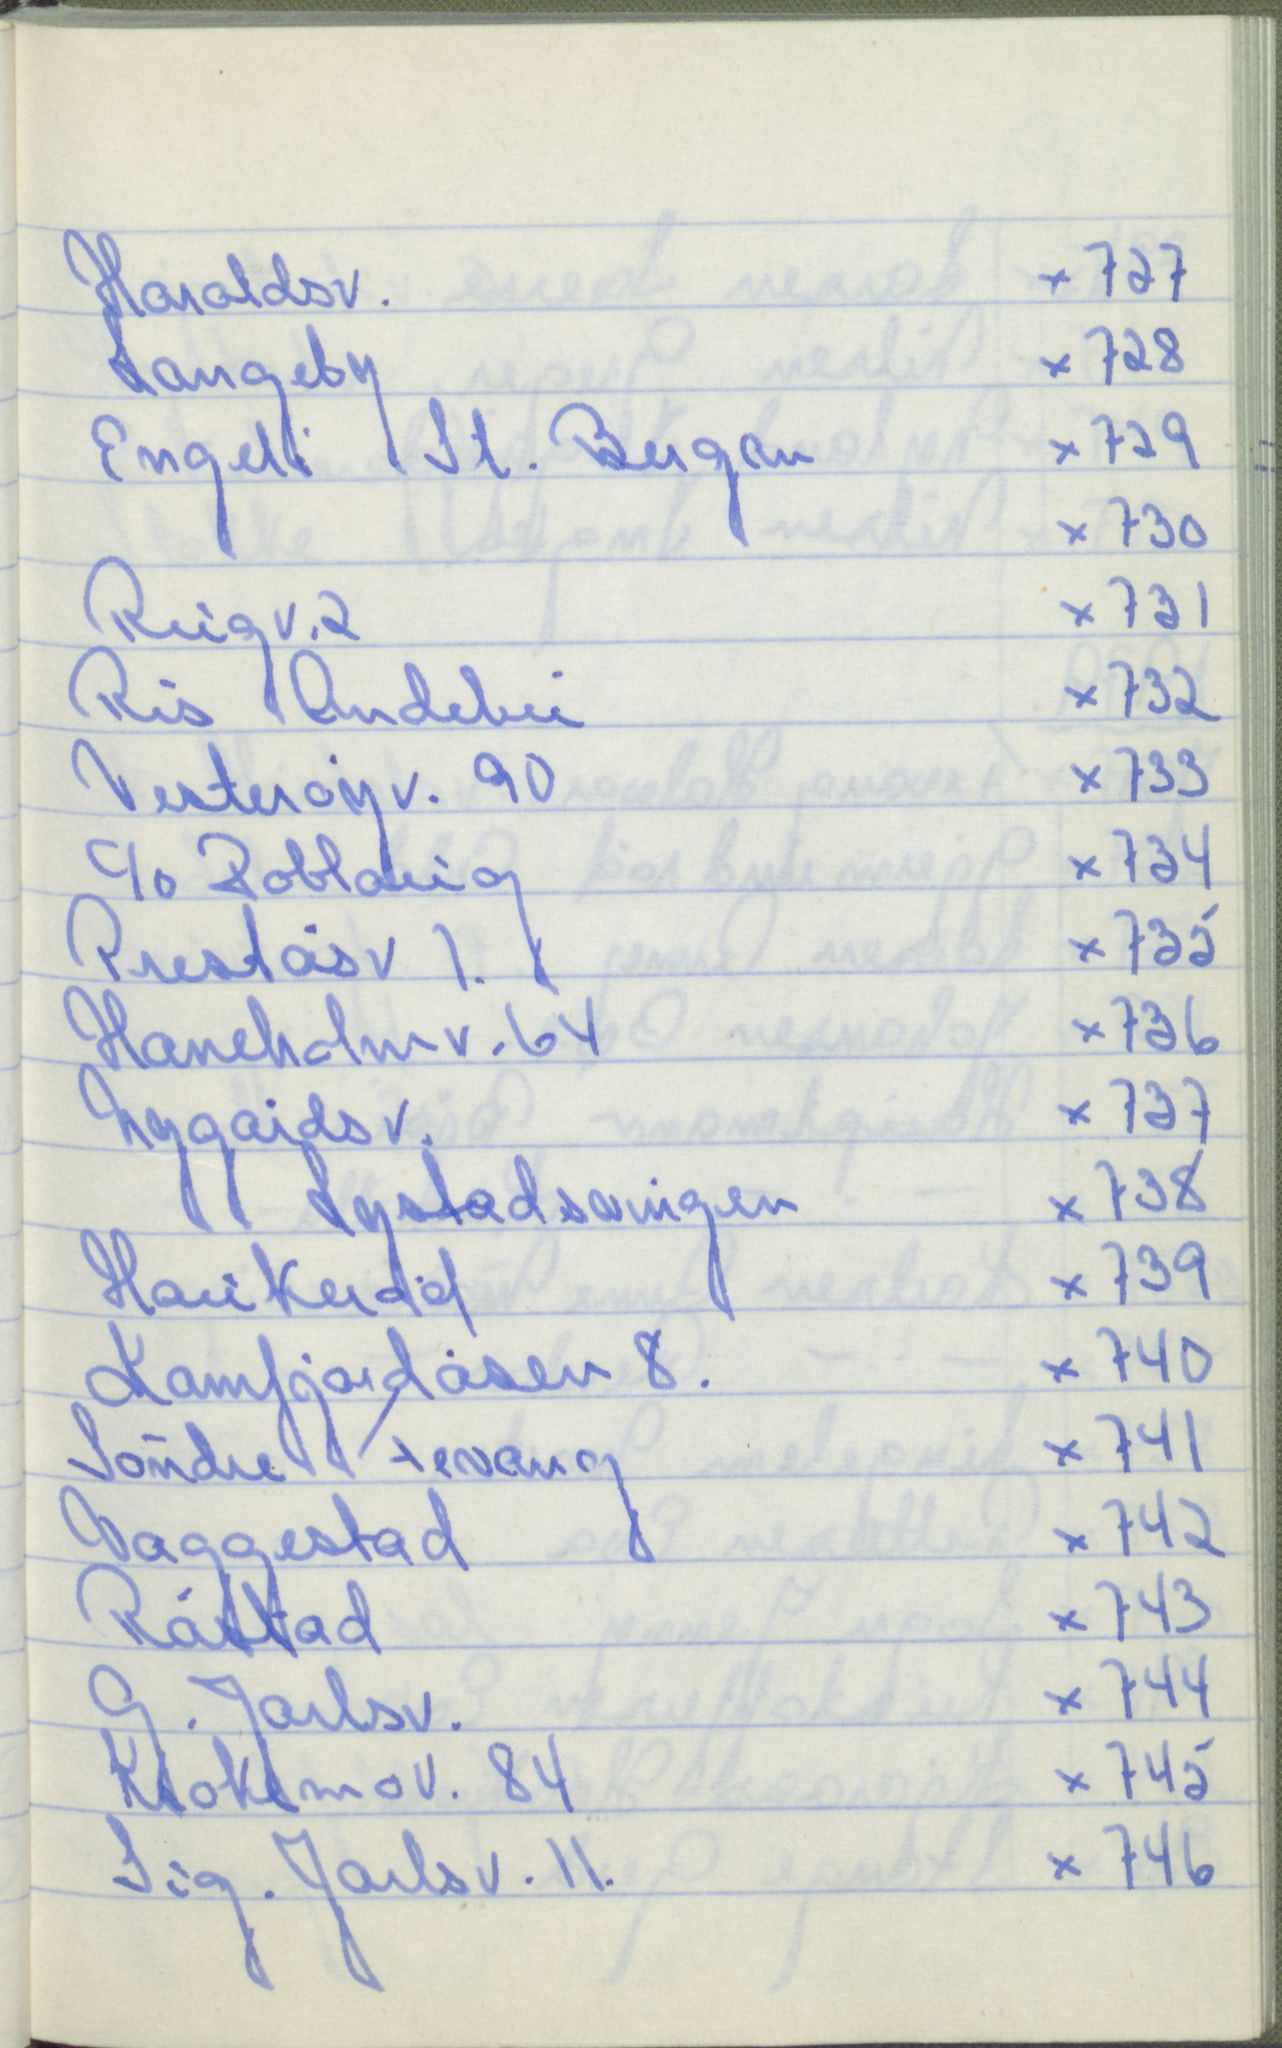 Haraldsv. x 727
Langeby x 728
Engeli St. Bergan x 729
x 730
Ringv. 2 x 731
Ris Andebu x 732
Vesterøyv. 90 x 733
c/o Roblarig x 734
Preståsv 1. x 735
Haneholmv. 64 x 736
Nygårdsv. x 737
Lystadsvingen x 738
Haukerød x 739
Kamfjordåsen 8. x 740
Söndre Tevang x 741
Vaggestad x 742
Råstad x 743
G. Jarlsv. x 744
Krokemov. 84 x 745
Sig. Jarlsv. 11. x 746